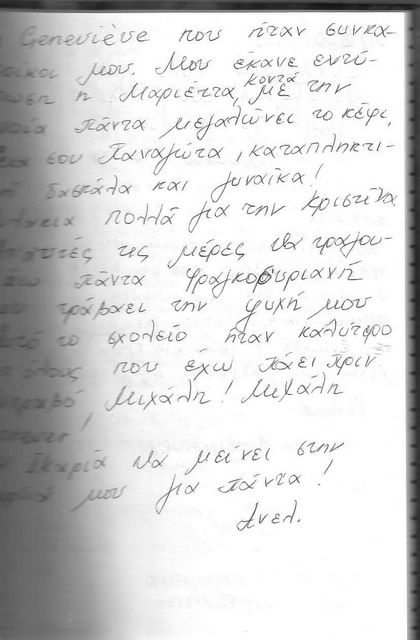 Geneviève που ήταν συγκά-
τοικοι μου. Μου έκανε εντύ-
πωση η Μαριέττα, κοντά με την
οποία πάντα μεγαλώνει το κέφι,
σου Παναγιώτα, καταπληκτι-
κή δασκάλα και γυναίκα!
πολλά για την Κριστίνα
αυτές τις μέρες να τραγου-
πάντα Φραγκοσυριανή
τράβαει την ψυχή μου
Αυτό το σχολείο ήταν καλύτερο
όλους που έχω πάει πριν
Μπραβό, Μιχάλη! Μιχάλη
!
Ικαριά να μείνει στην
μου για πάντα!
Ανελ.